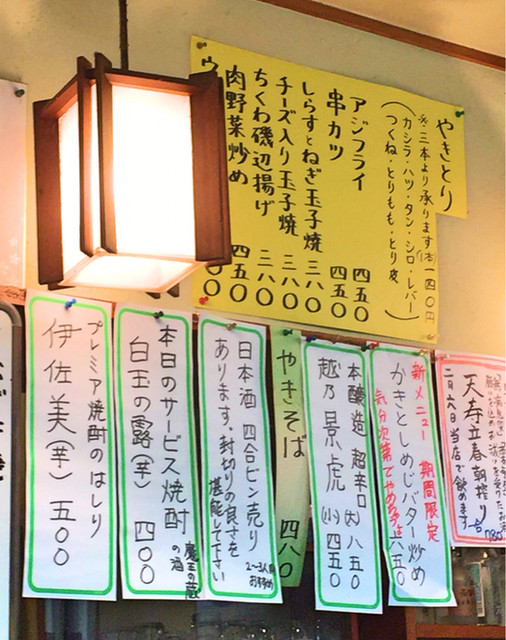 やきとり
※三本より承ります(1本)一四〇円
(カシラ・ハツ・タン・シロ・レバー
つくね・とりもも・とり皮)
アジフライ 四五〇
串カツ 四五〇
しらすとねぎ玉子焼 三八〇
チーズ入り玉子焼 三八〇
ちくわ磯辺揚げ 三八〇
肉野菜炒め 四五〇
天寿立春朝搾り
二月六日当店で飲めます
新メニュー 期間限定
かきとしめじバター炒め 六五〇
気分次第でやめるかも
本醸造 超辛口 (大)八五〇
越乃景虎 (小)四五〇
やきそば 四八〇
日本酒 四合ビン売り
あります。封切りの良さを
堪能して下さい
2〜3人用
おすすめ
本日のサービス焼酎
白玉の露(芋) 四〇〇
魔王の蔵
の酒
プレミア焼酎のはしり
伊佐美(芋) 五〇〇